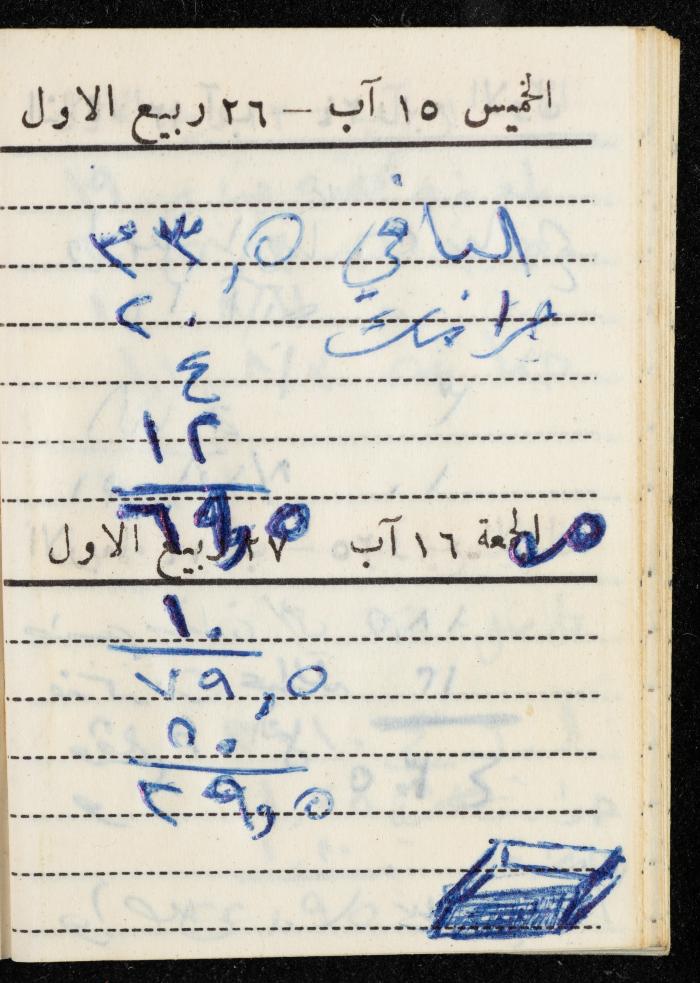 الخميس ١٥ آب – ٢٦ ربيع الاول
الباقي ٣٣,٥
٢٠
٤
١٢
٦٩,٥
الجمعة ١٦ آب ٢٧ ربيع الاول
١٠
٧٩,٥
٥٠
٢٩,٥